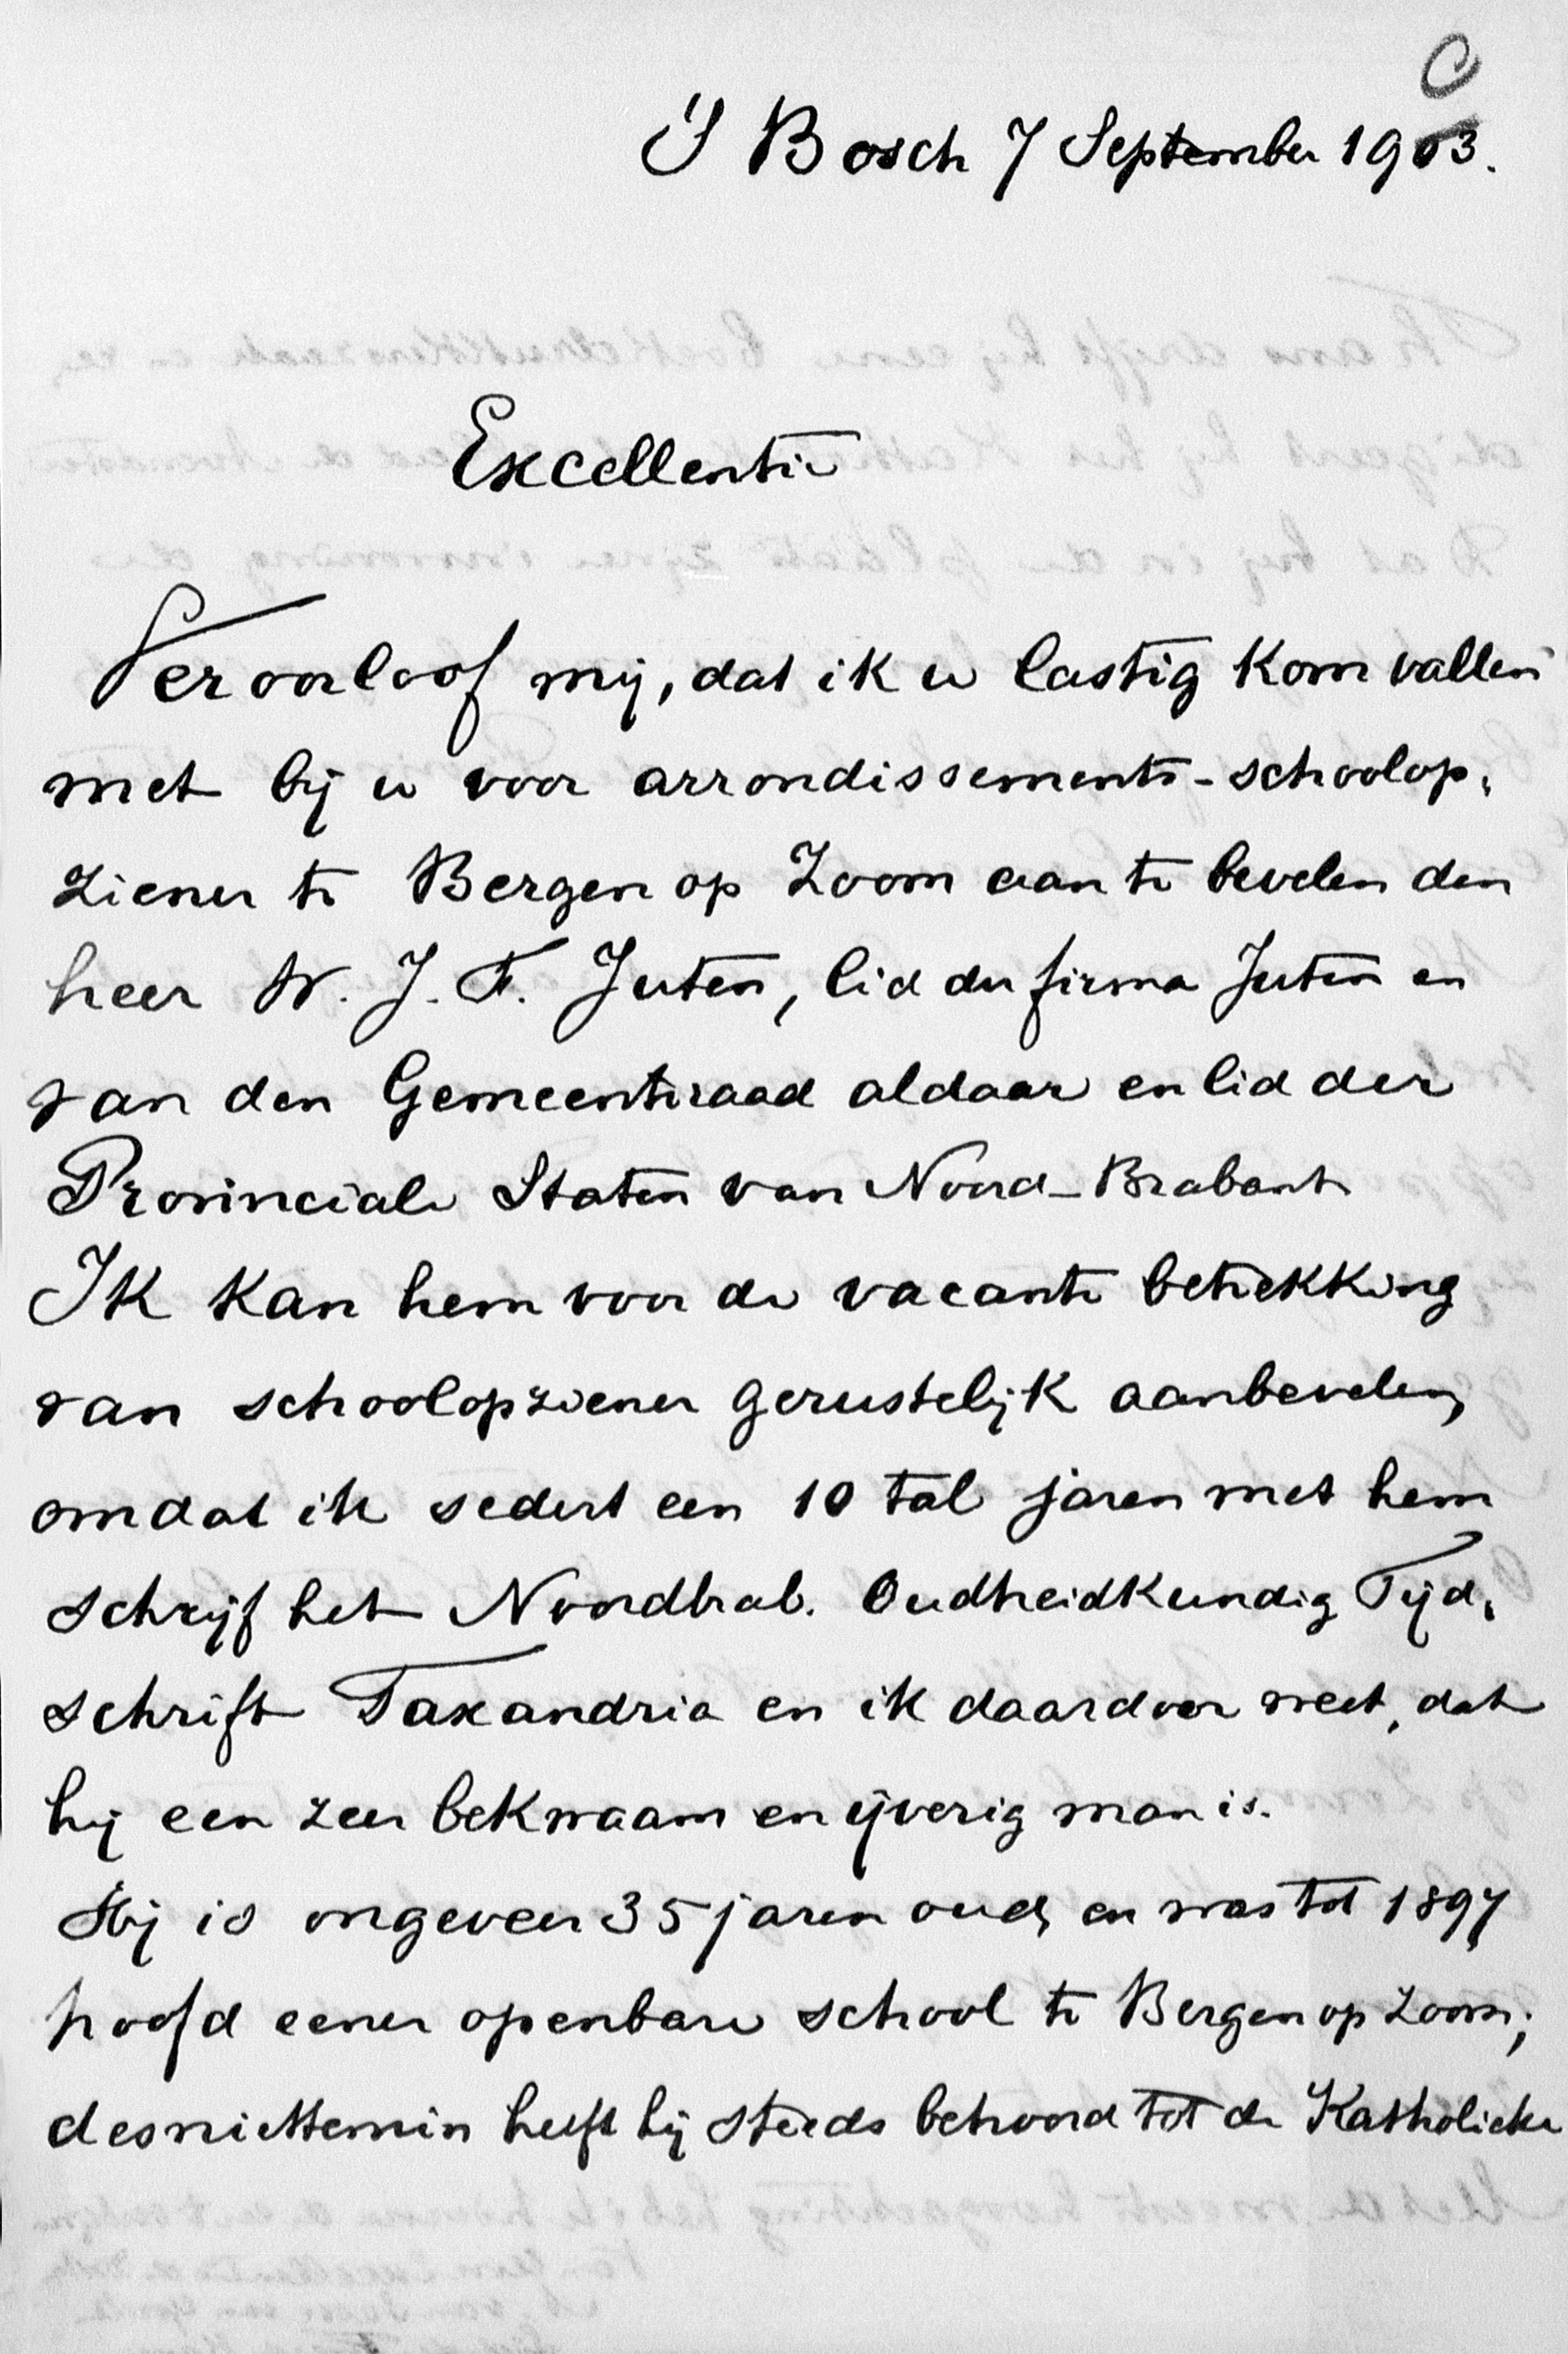 C
'S Bosch 7 September 1903.
Excellentie
Veroorloof mij, dat ik u lastig kom vallen
met bij u voor arrondissements-schoolop-
ziener te Bergen op Zoom aan te bevelen den
heer W. J. F. Juten, lid der firma Juten en
van den Gemeenteraad aldaar en lid der
Provinciale Staten van Noord-Brabant
Ik kan hem voor de vacante betrekking
van schoolopziener gerustelijk aanbevelen,
omdat ik sedert een 10 tal jaren met hem
schrijf het Noordbrab. Oudheidkundig Tijd-
schrift Taxandria en ik daardoor weet, dat
hij een zeer bekwaam en ijverig man is.
Hij is ongeveer 35 jaren oud, en was tot 1897
hoofd eener openbare school te Bergen op Zoom;
desniettemin heeft hij steeds behoord tot de Katholieke